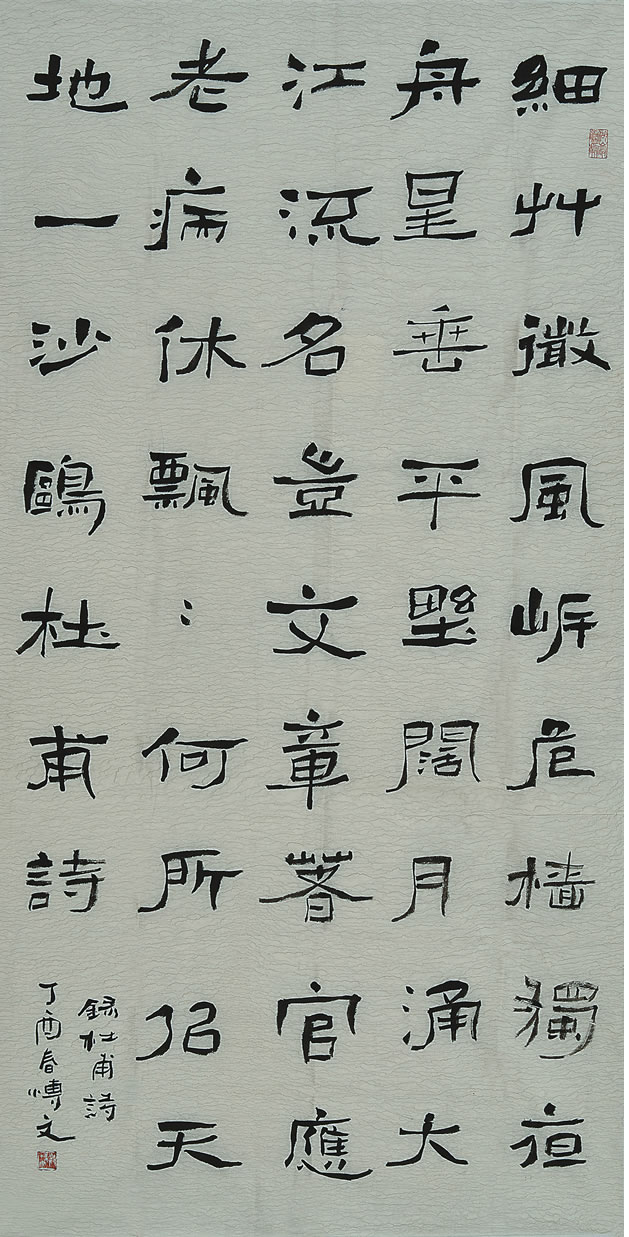 細艸微風岸危檣獨夜
舟星垂平野闊月涌大
江流名豈文章著官應
老病休飄：何所似天
地一沙鷗杜甫詩
録杜甫詩
丁酉春愽文